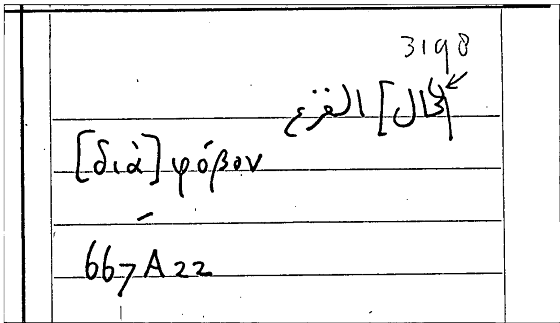 3198
[لحال] الفزع
[διὰ] φόβον
667A22